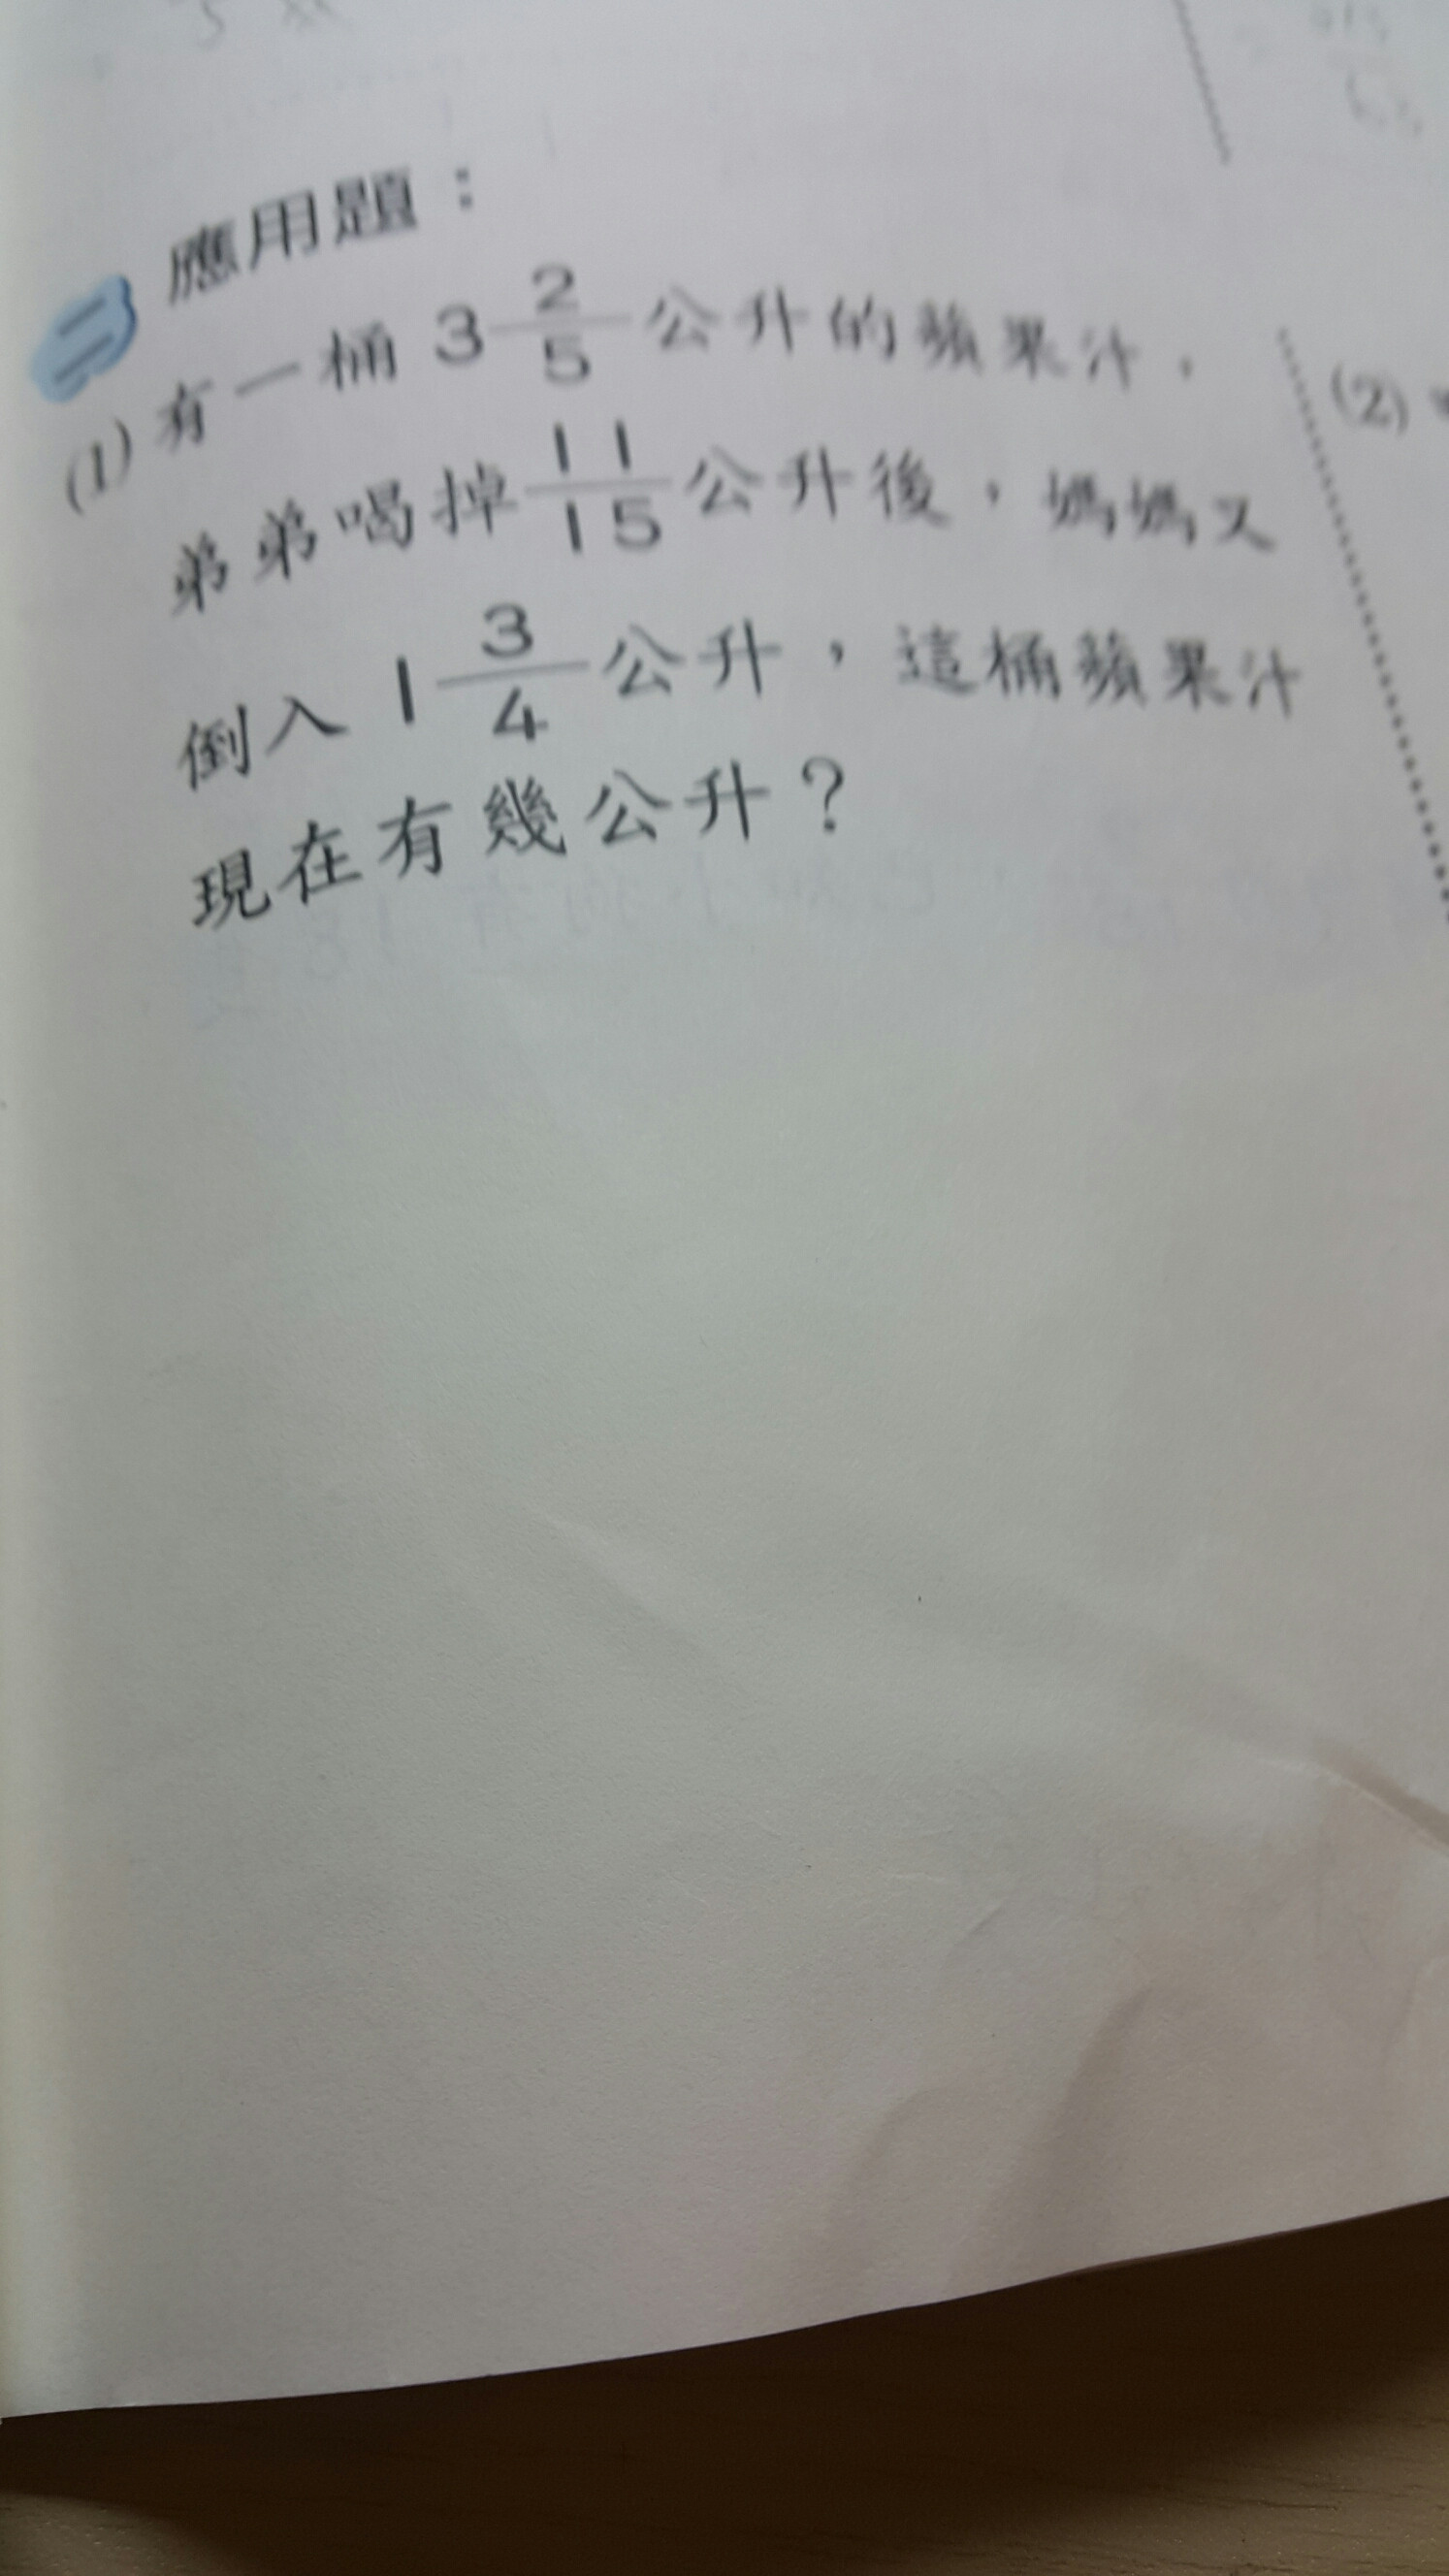 二 應用題：
(1) 有一桶 3 2/5 公升的蘋果汁，
弟弟喝掉 11/15 公升後，媽媽又
倒入 1 3/4 公升，這桶蘋果汁
現在有幾公升？
(2)